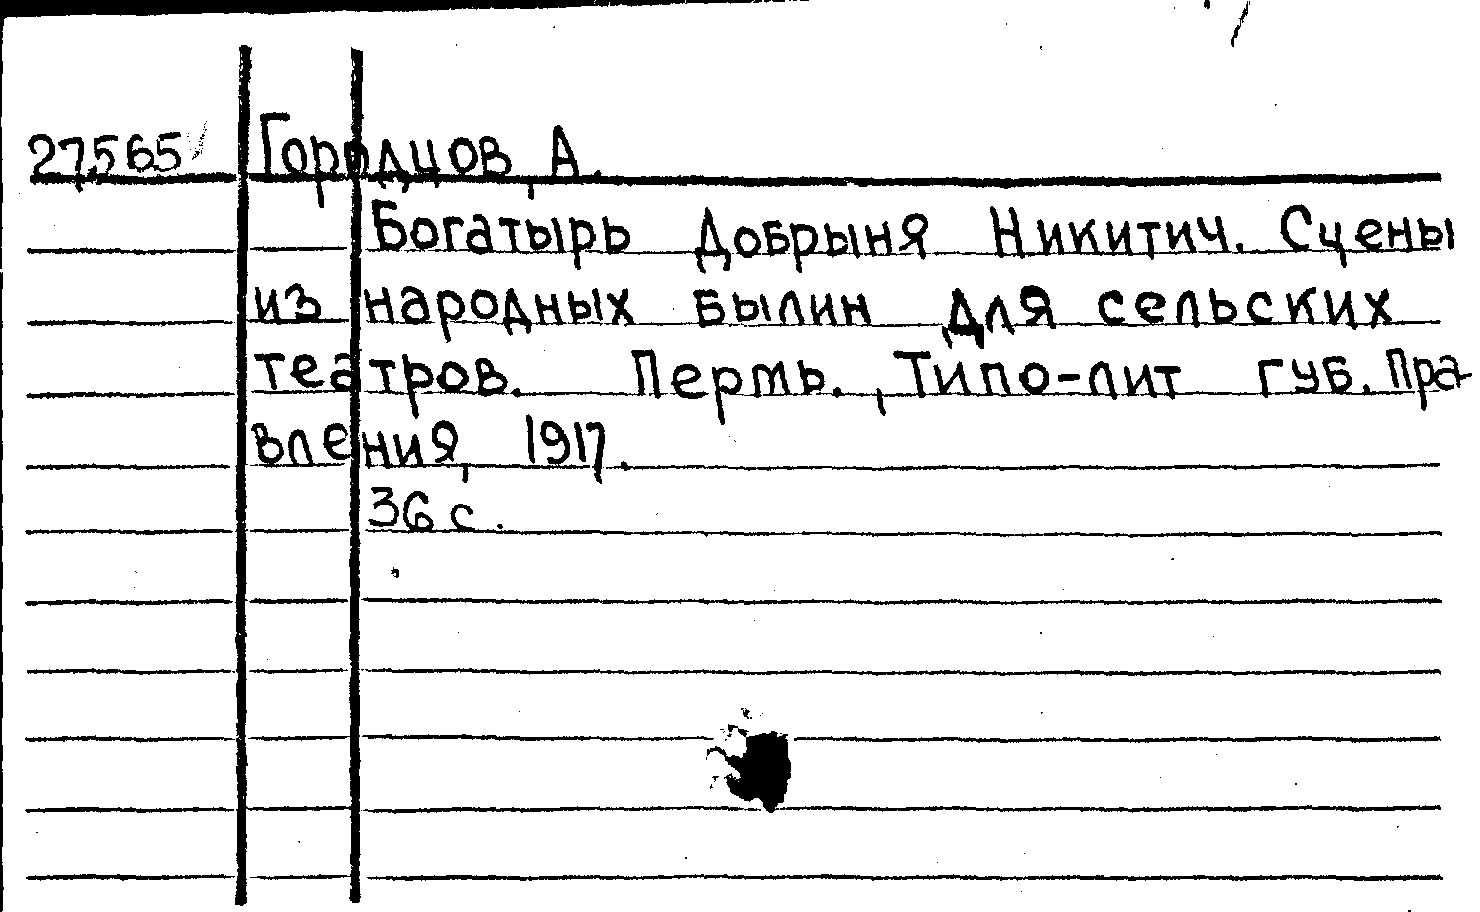 27565 Городцов, А.
Богатырь Добрыня Никитич. Сцены
из народных былин для сельских
театров. Пермь., Типо-лит губ. Пра-
вления, 1917.
36 с.